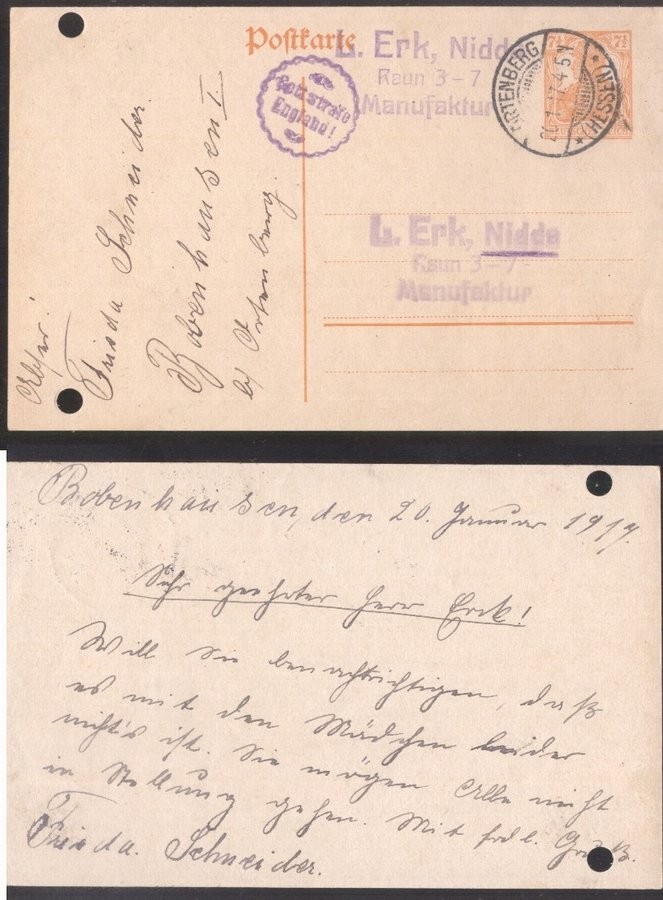 Postkarte
L. Erk, Nidda
Raun 3-7
Manufaktur
Gott strafe
England!
ORTENBERG
(HESSEN)
7½
7½
L. Erk, Nidda
Raun 3-7
Manufaktur
Frieda Schneider.
Bobenhausen I.
b/ Ortenberg.
Bobenhausen, den 20. Januar 1917.
Sehr geehrter Herr Erck!
Will Sie benachrichtigen, daß
es mit den Mädchen leider
nicht's ist. Sie mögen Alle nicht
in Stellung gehen. Mit frdl. Gruß.
Frieda. Schneider.